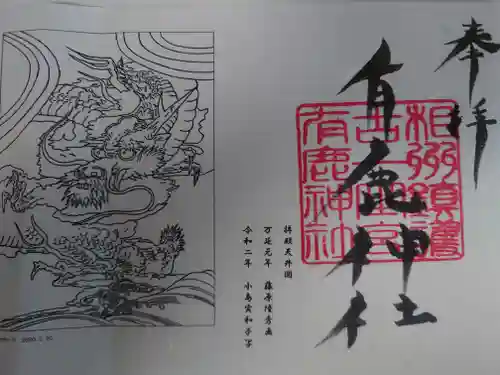 奉拝
有鹿神社
相州鎮護
五ノ宮
有鹿神社
拝殿天井図
万延元年 藤原隆秀画
令和二年 小島寅和子写